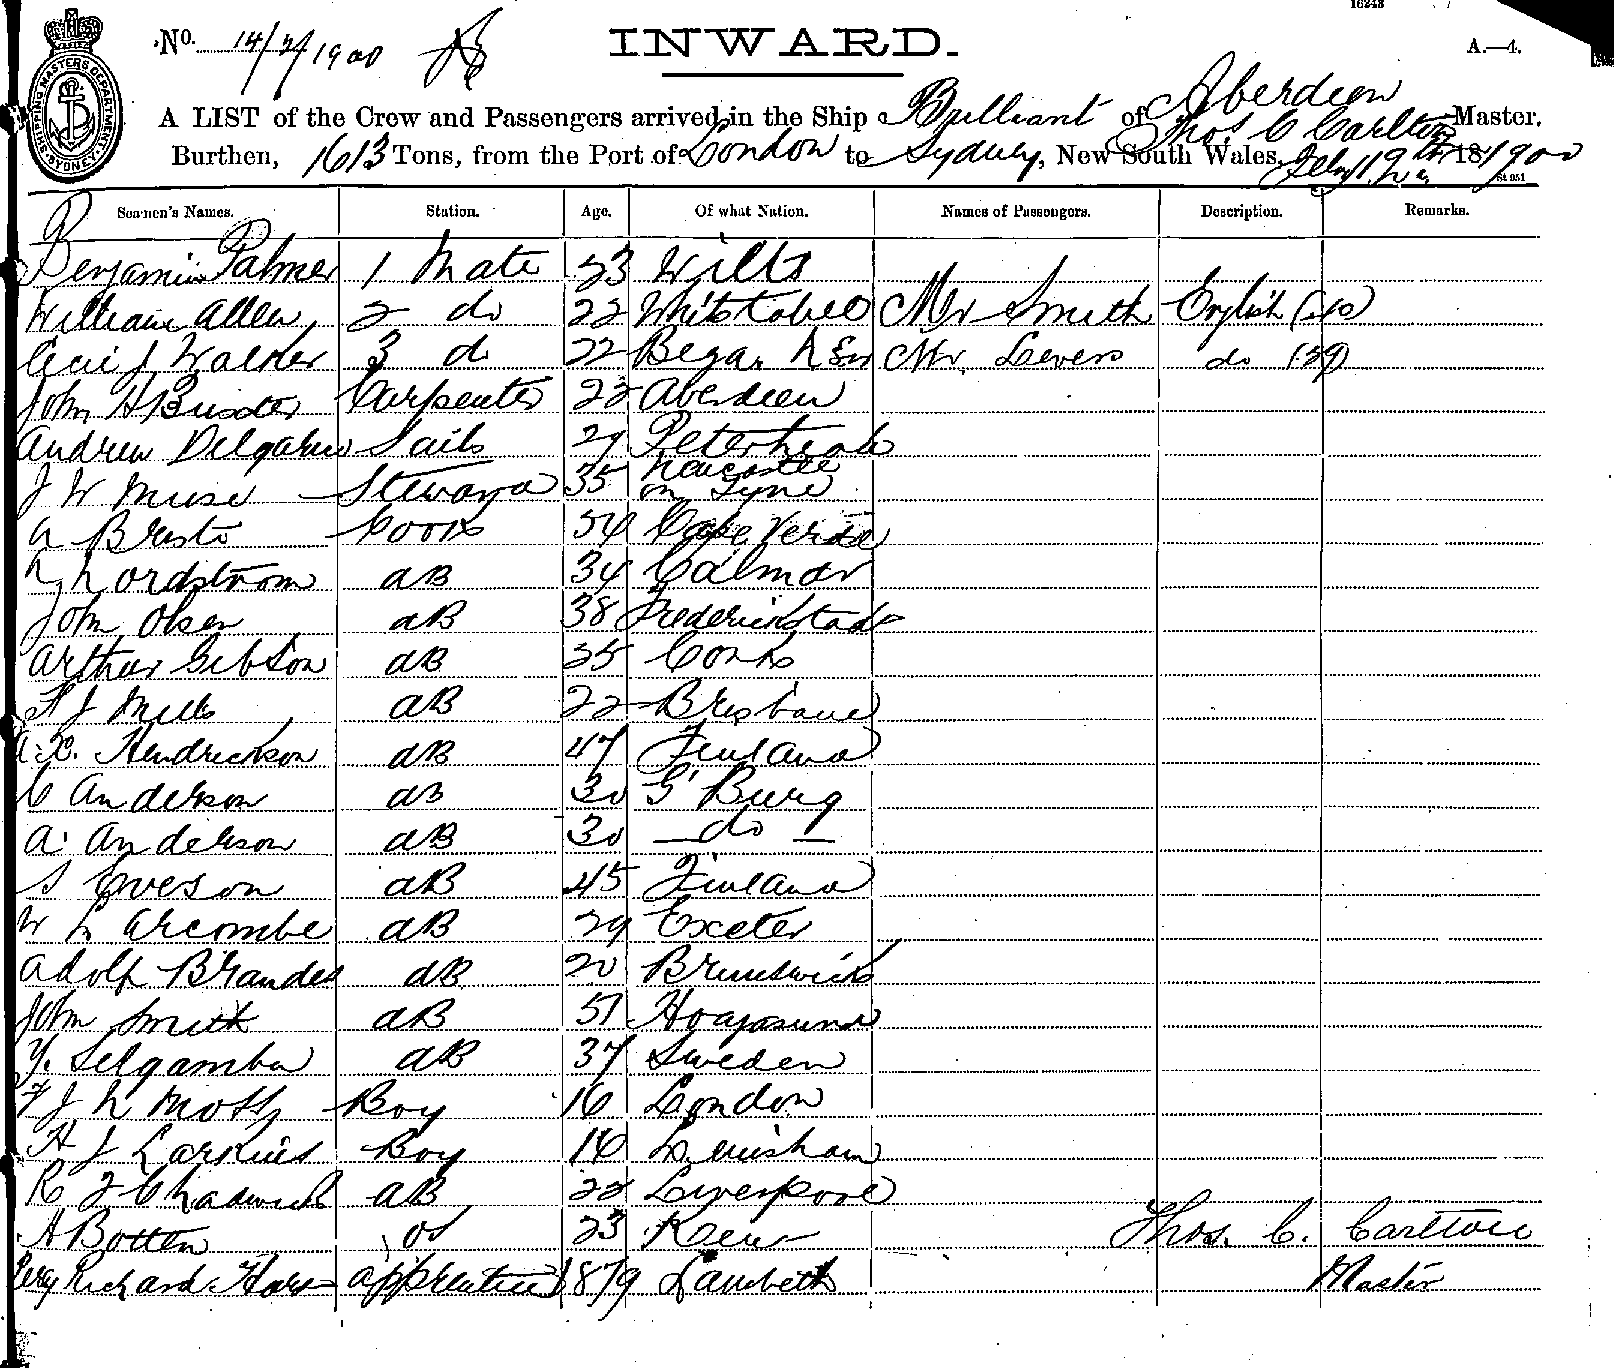 16243
No. 14/2/1900
INWARD.
A.—4.
SHIPPING MASTERS DEPARTMENT SYDNEY
A LIST of the Crew and Passengers arrived in the Ship Brilliant of Aberdeen Thos C Carlton Master,
Burthen, 1613 Tons, from the Port of London to Sydney, New South Wales, Feby 12th 18 1900
St 951
Seamen's Names. Station. Age. Of what Nation. Names of Passengers. Description. Remarks.
Benjamin Palmer 1 Mate 23 Wilts
William Allen 2 do 22 Whitstable Mr Smith English
Cecil J Walker 3 do 22 Bega. N S W Mr. Levers do (39)
John H Buxter Carpenter 22 Aberdeen
Andrew Delgarno Sails 29 Peterhead
J W Muse Steward 35 Newcastle on Tyne
A Bristo Cook 54 Cape Verde
N Nordstrom AB 34 Calmar
John Olsen AB 38 Frederickstadt
Arthur Gibson AB 25 Cork
F J Mills AB 22 Brisbane
A. Hendrickson AB 47 Finland
C Anderson AB 30 G'Burg
A. Anderson AB 30 — do —
S Eveson AB 45 Finland
W Larcombe AB 29 Exeter
Adolf Brandes AB 20 Brunswick
John Smith AB 51
Y. Selgamba AB 37 Sweden
F J N Mott Boy 16 London
H J Larkins Boy 16 Lewisham
R J Chadwick AB 22 Liverpool
A Botten OS 23 Kew Thos. C. Carlton
Percy Richard Apprentice 1879 Lambeth Master